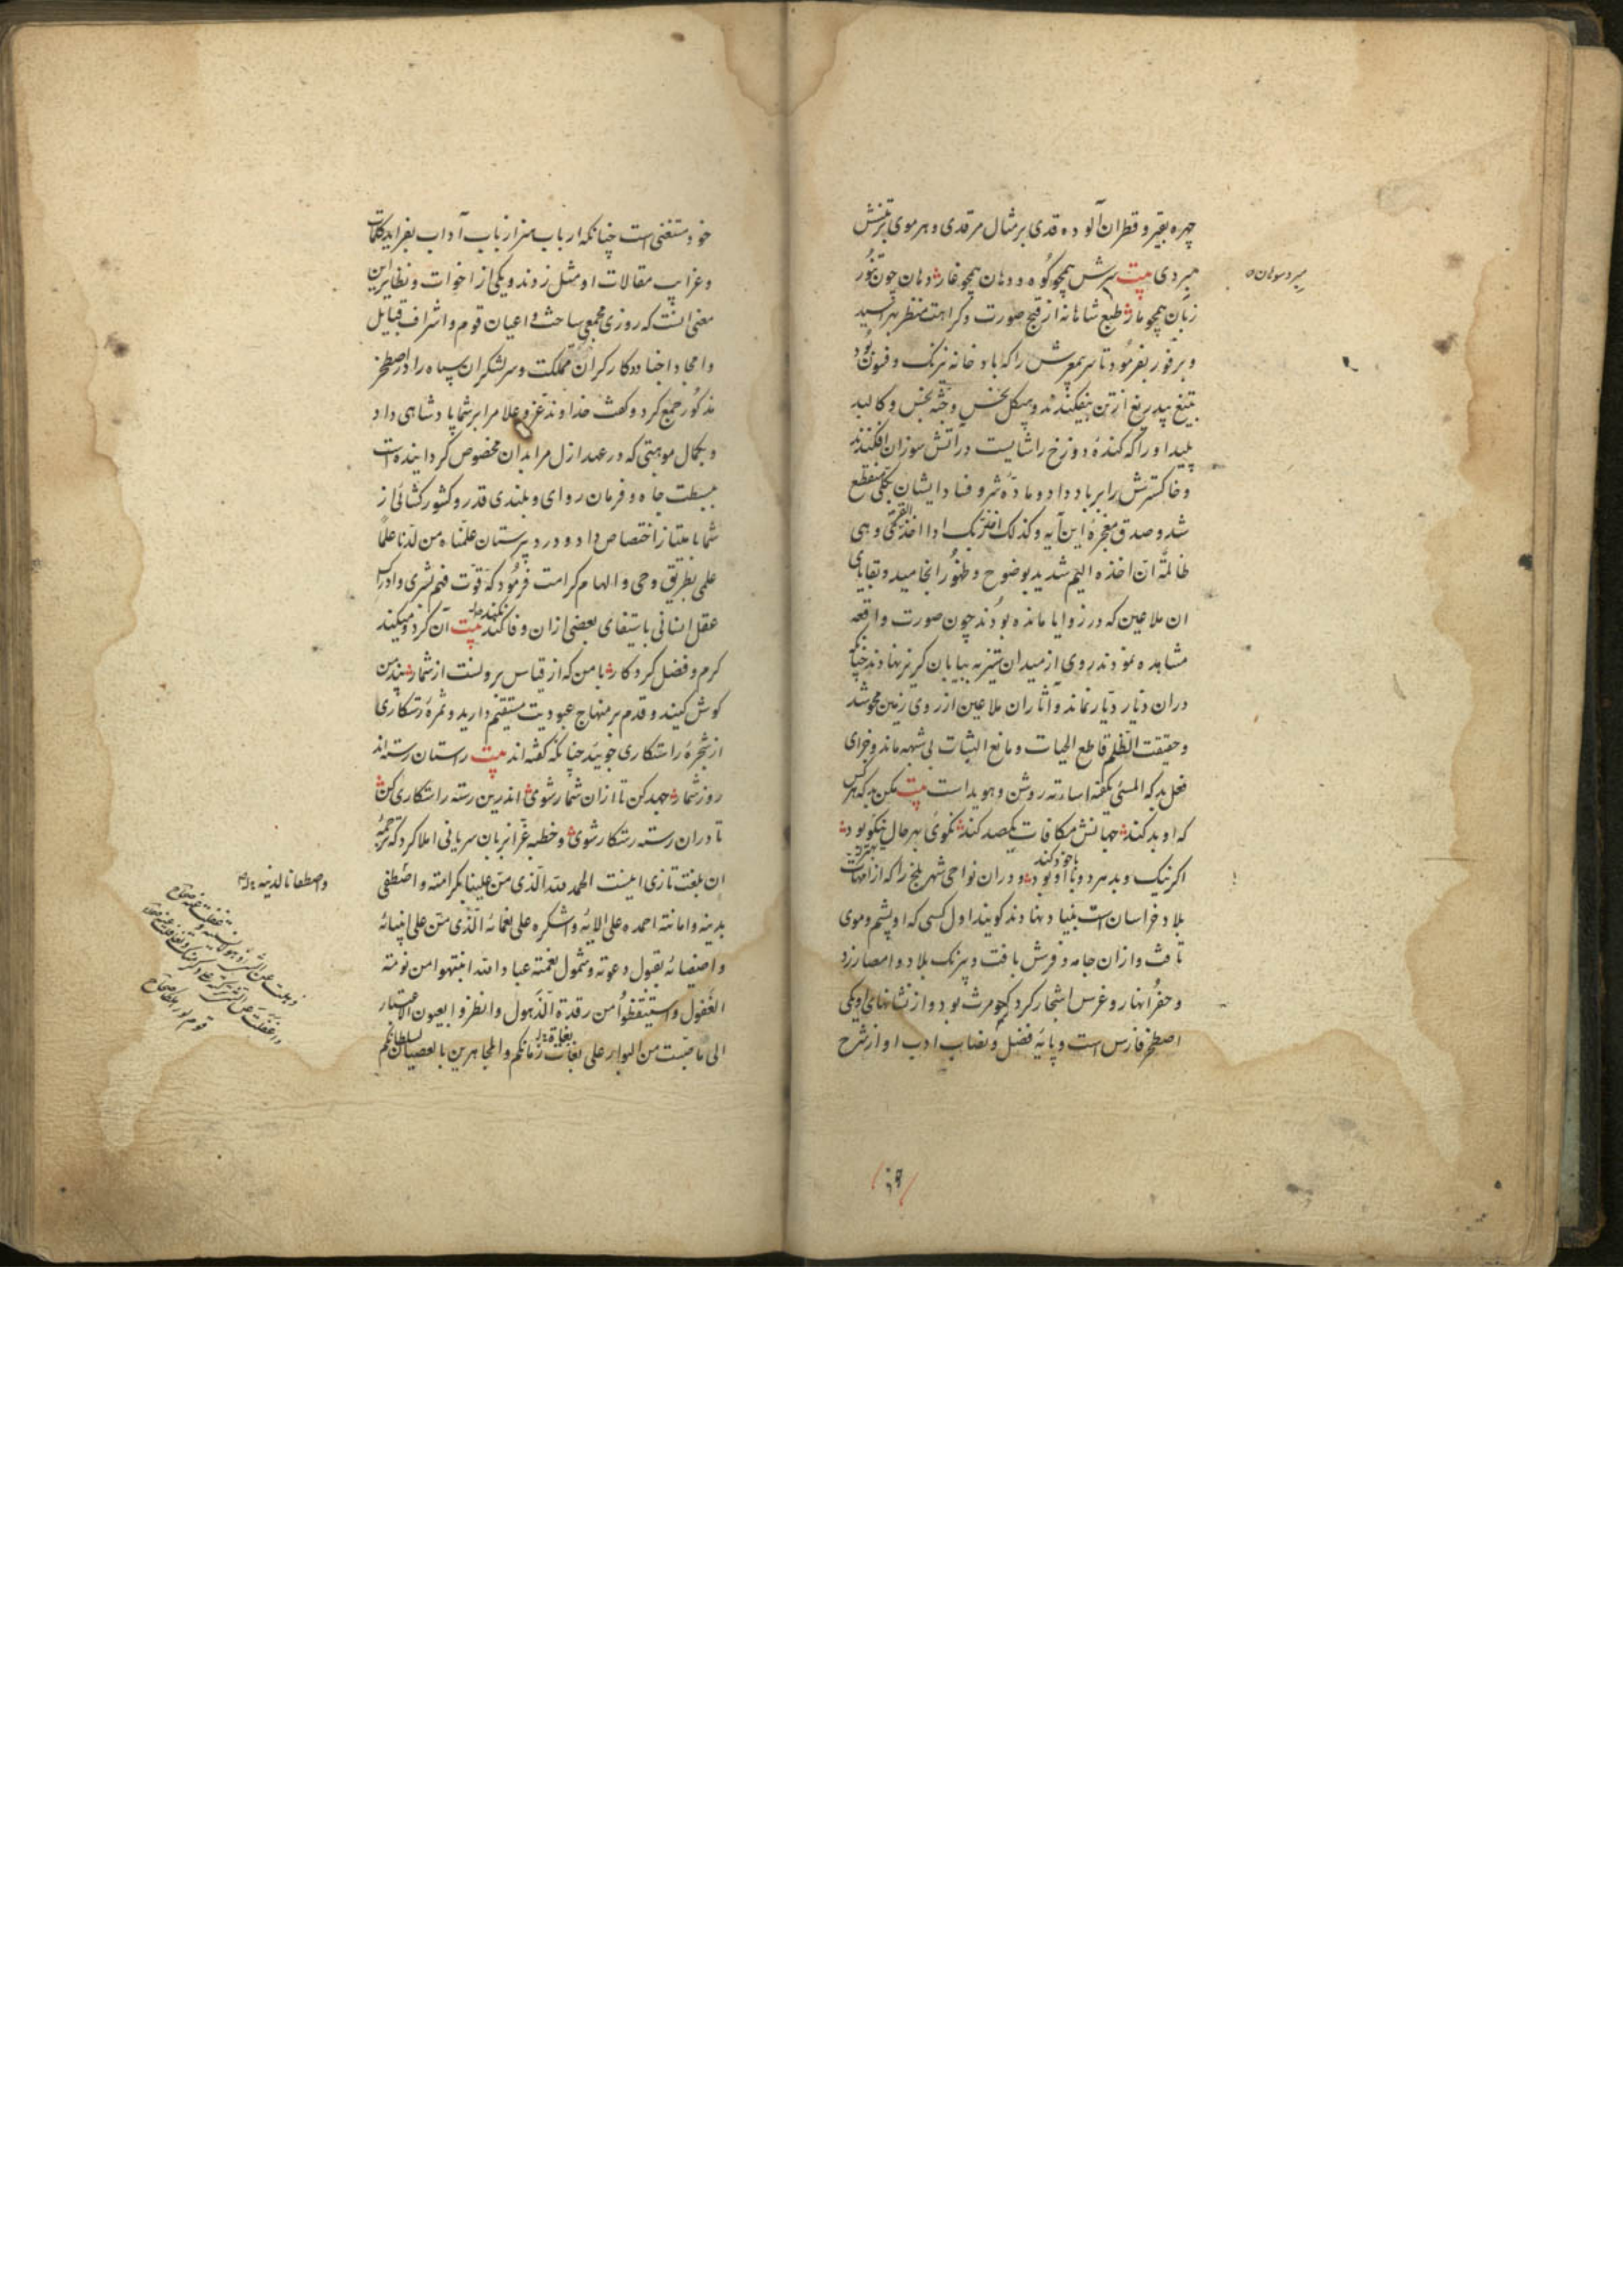 چهره بقیر و قطران آلوده قدی بر مثال مرقدی و هر موی بر تنش
مبردی بیت سرش همچو کوه و دهان همچو غار دهان چون تنور
زبان همچو مار طبع شاهانه از قبح صورت و کراهت منظر بهراسید
و بر فور بفرمود تا سر را که باد خانه نیرنک و فسون بود
بتیغ بیدریغ از تن بیفکندند و هیکل نحس و جثه نجس و کالبد
پلید او را که کنده دوزخ را شایست در آتش سوزان افکندند
و خاکسترش را بر باد داد و ماده شر و فساد ایشان بکلی منقطع
شد و صدق معجزه این آیه و کذلک اخذ ربک اذا اخذ القری و هی
ظالمة ان اخذه الیم شدید بوضوح و ظهور انجامید و بقایای
ان ملاعین که در زوایا مانده بودند چون صورت واقعه
مشاهده نمودند روی از میدان ستیز به بیابان کریز نهادند چنانکه
دران دیار دیار نماند و آثار ان ملاعین از روی زمین محو شد
و حقیقت الظلم قاطع الحیات و مانع النبات بی شبهه ماند و جزای
فعل بد که المسئی یکفیه اساءته روشن و هویداست بیت مکن بد که هر کس
که او بد کند جهانش مکافات یکصد کند نکوی بهر حال نیکو بود
اکر نیک و بد هر دو با او بود و دران نواحی شهر بلخ را که از امهات
بلاد خراسان است بنیاد نهادند کویند اول کسی که او پشم و موی
تافت و ازان جامه و فرش بافت و بلاد و امصار زد
و حفر انهار و غرس اشجار کرد کیومرث بود و از نشانهای او یکی
اصطخر فارس است و پایه فضل و نصاب ادب او از شرح
مبرد سوهان
باخود کند
بهتر بود
خود مستغنی است چنانکه ارباب هنر از باب آداب بغراید کلمات
و غرایب مقالات او مثل زدند و یکی از اخوات و نظایر این
معنی آنست که روزی مجمعی ساخت و اعیان قوم و اشراف قبایل
و امجاد اجناد و کارکران مملکت و سرلشکران سپاه را در اصطخر
مذکور جمع کرد و گفت خداوند عز و علا مرا بر شما پادشاهی داد
و بکمال موهبتی که در عهد ازل مرا بدان مخصوص کردانیده است
ببسطت جاه و فرمان روای و بلندی قدر و کشورکشائی از
شما بامتیاز اختصاص داد و در دبیرستان علمناه من لدنا علما
علمی بطریق وحی و الهام کرامت فرمود که قوت فهم بشری و ادراک
عقل انسانی باستیفای بعضی ازان وفا نکند بیت آن کرد و میکند
کرم و فضل کردکار با من که از قیاس برونست از شمار پند من
کوش کنید و قدم بر منهاج عبودیت مستقیم دارید و ثمره رستکاری
از شجره راستکاری جویید چنانکه گفته اند بیت راستان رسته اند
روز شمار جهد کن تا ازان شمار شوی اندرین رسته راستکاری کن
تا دران رسته رستکار شوی و خطبه غرا بزبان سریانی املا کرد که ترجمه
ان بلغت تازی اینست الحمد لله الذی من علینا بکرامته و اصطفی
بدینه و امانته احمده علی آلائه و اشکره علی نعمائه الذی من علی انبیائه
و اصفیائه بقبول دعوته و شمول نعمته عباد الله انتبهوا من نومة
الغفول و استیقظوا من رقدة الذهول و انظروا بعیون الاعتبار
الی ما من البوار علی بغات زمانکم و المجاهرین بالعصیان لسلطانکم
نکند
بغاة
و اصطفانا لدینه